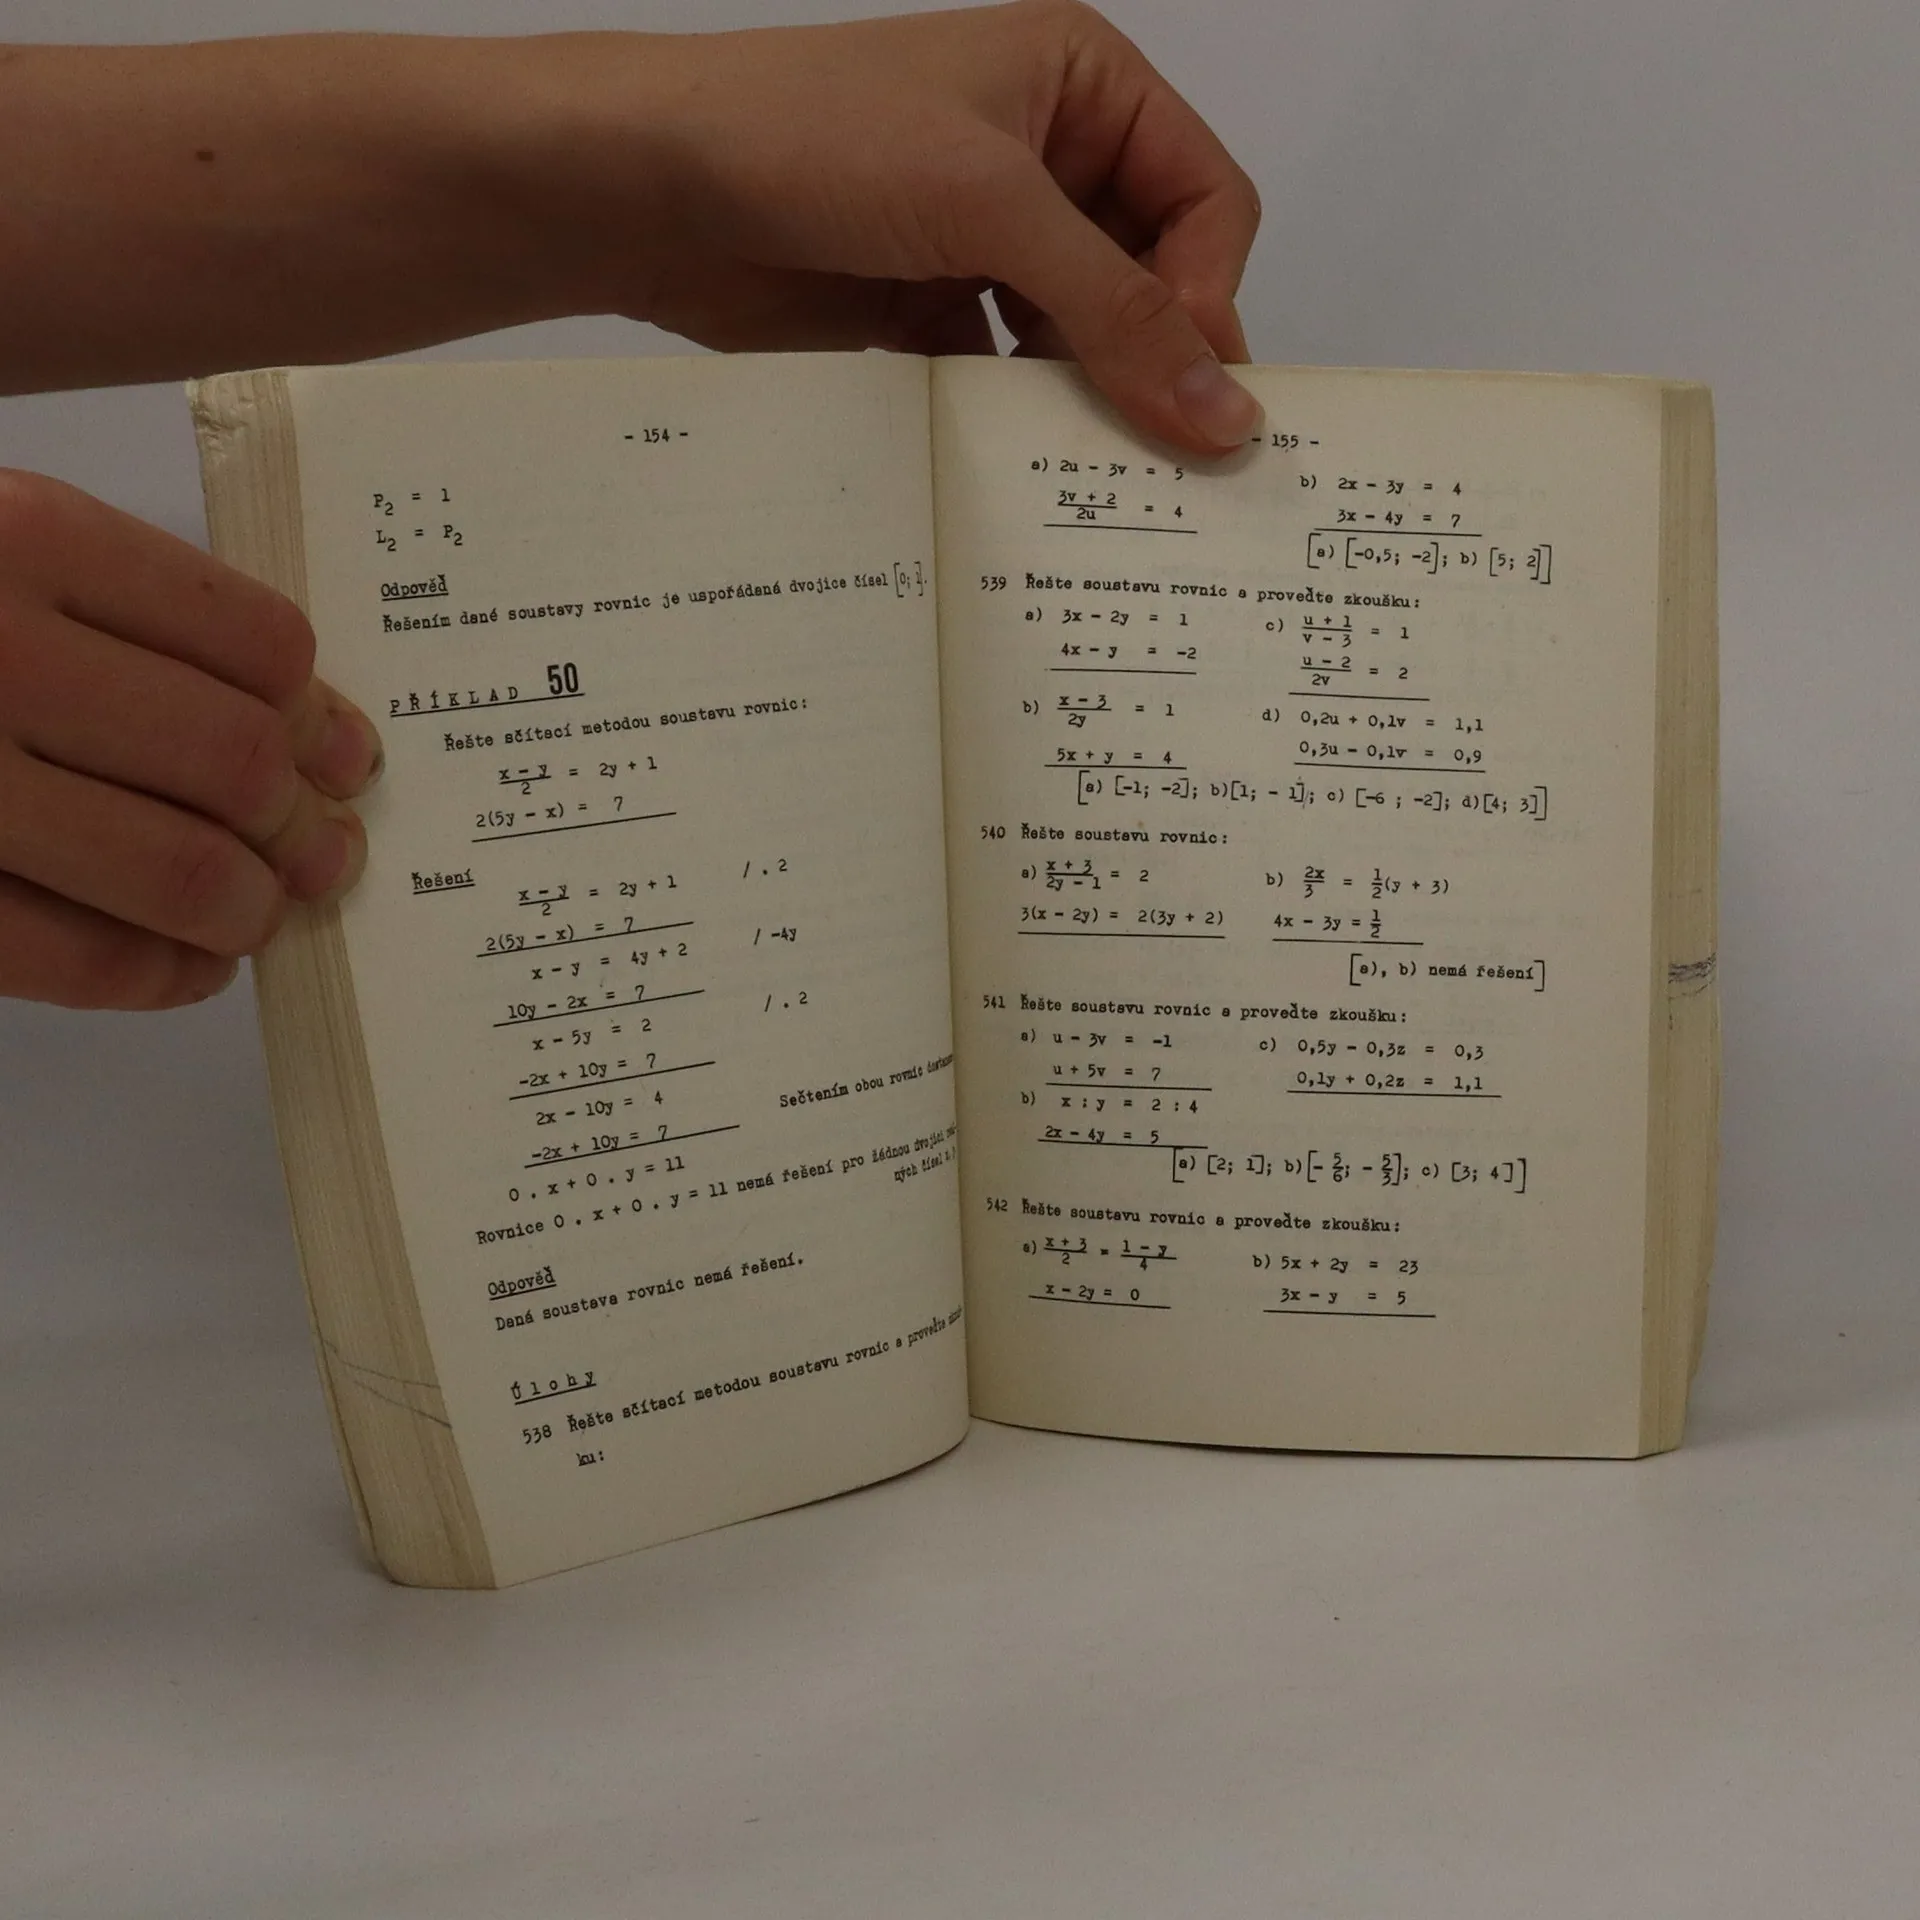 - 154 -
P2 = 1
L2 = P2
Odpověď
Řešením dané soustavy rovnic je uspořádaná dvojice čísel [0; 1].
PŘÍKLAD 50
Řešte sčítací metodou soustavu rovnic:
(x - y)/2 = 2y + 1
2(5y - x) = 7
Řešení
(x - y)/2 = 2y + 1 / . 2
2(5y - x) = 7
x - y = 4y + 2 / -4y
10y - 2x = 7
x - 5y = 2 / . 2
-2x + 10y = 7
2x - 10y = 4
-2x + 10y = 7 Sečtením obou rovnic
0 . x + 0 . y = 11
Rovnice 0 . x + 0 . y = 11 nemá řešení pro žádnou dvojici
ných čísel
Odpověď
Daná soustava rovnic nemá řešení.
Úlohy
538 Řešte sčítací metodou soustavu rovnic a proveďte
ku:
- 155 -
a) 2u - 3v = 5
(3v + 2)/2u = 4
b) 2x - 3y = 4
3x - 4y = 7
[a) [-0,5; -2]; b) [5; 2]]
539 Řešte soustavu rovnic a proveďte zkoušku:
a) 3x - 2y = 1
4x - y = -2
b) (x - 3)/2y = 1
5x + y = 4
c) (u + 1)/(v - 3) = 1
(u - 2)/2v = 2
d) 0,2u + 0,1v = 1,1
0,3u - 0,1v = 0,9
[a) [-1; -2]; b)[1; - 1]; c) [-6 ; -2]; d)[4; 3]]
540 Řešte soustavu rovnic:
a) (x + 3)/(2y - 1) = 2
3(x - 2y) = 2(3y + 2)
b) 2x/3 = 1/2(y + 3)
4x - 3y = 1/2
[a), b) nemá řešení]
541 Řešte soustavu rovnic a proveďte zkoušku:
a) u - 3v = -1
u + 5v = 7
b) x : y = 2 : 4
2x - 4y = 5
c) 0,5y - 0,3z = 0,3
0,1y + 0,2z = 1,1
[a) [2; 1]; b)[- 5/6; - 5/3]; c) [3; 4]]
542 Řešte soustavu rovnic a proveďte zkoušku:
a) (x + 3)/2 = (1 - y)/4
x - 2y = 0
b) 5x + 2y = 23
3x - y = 5